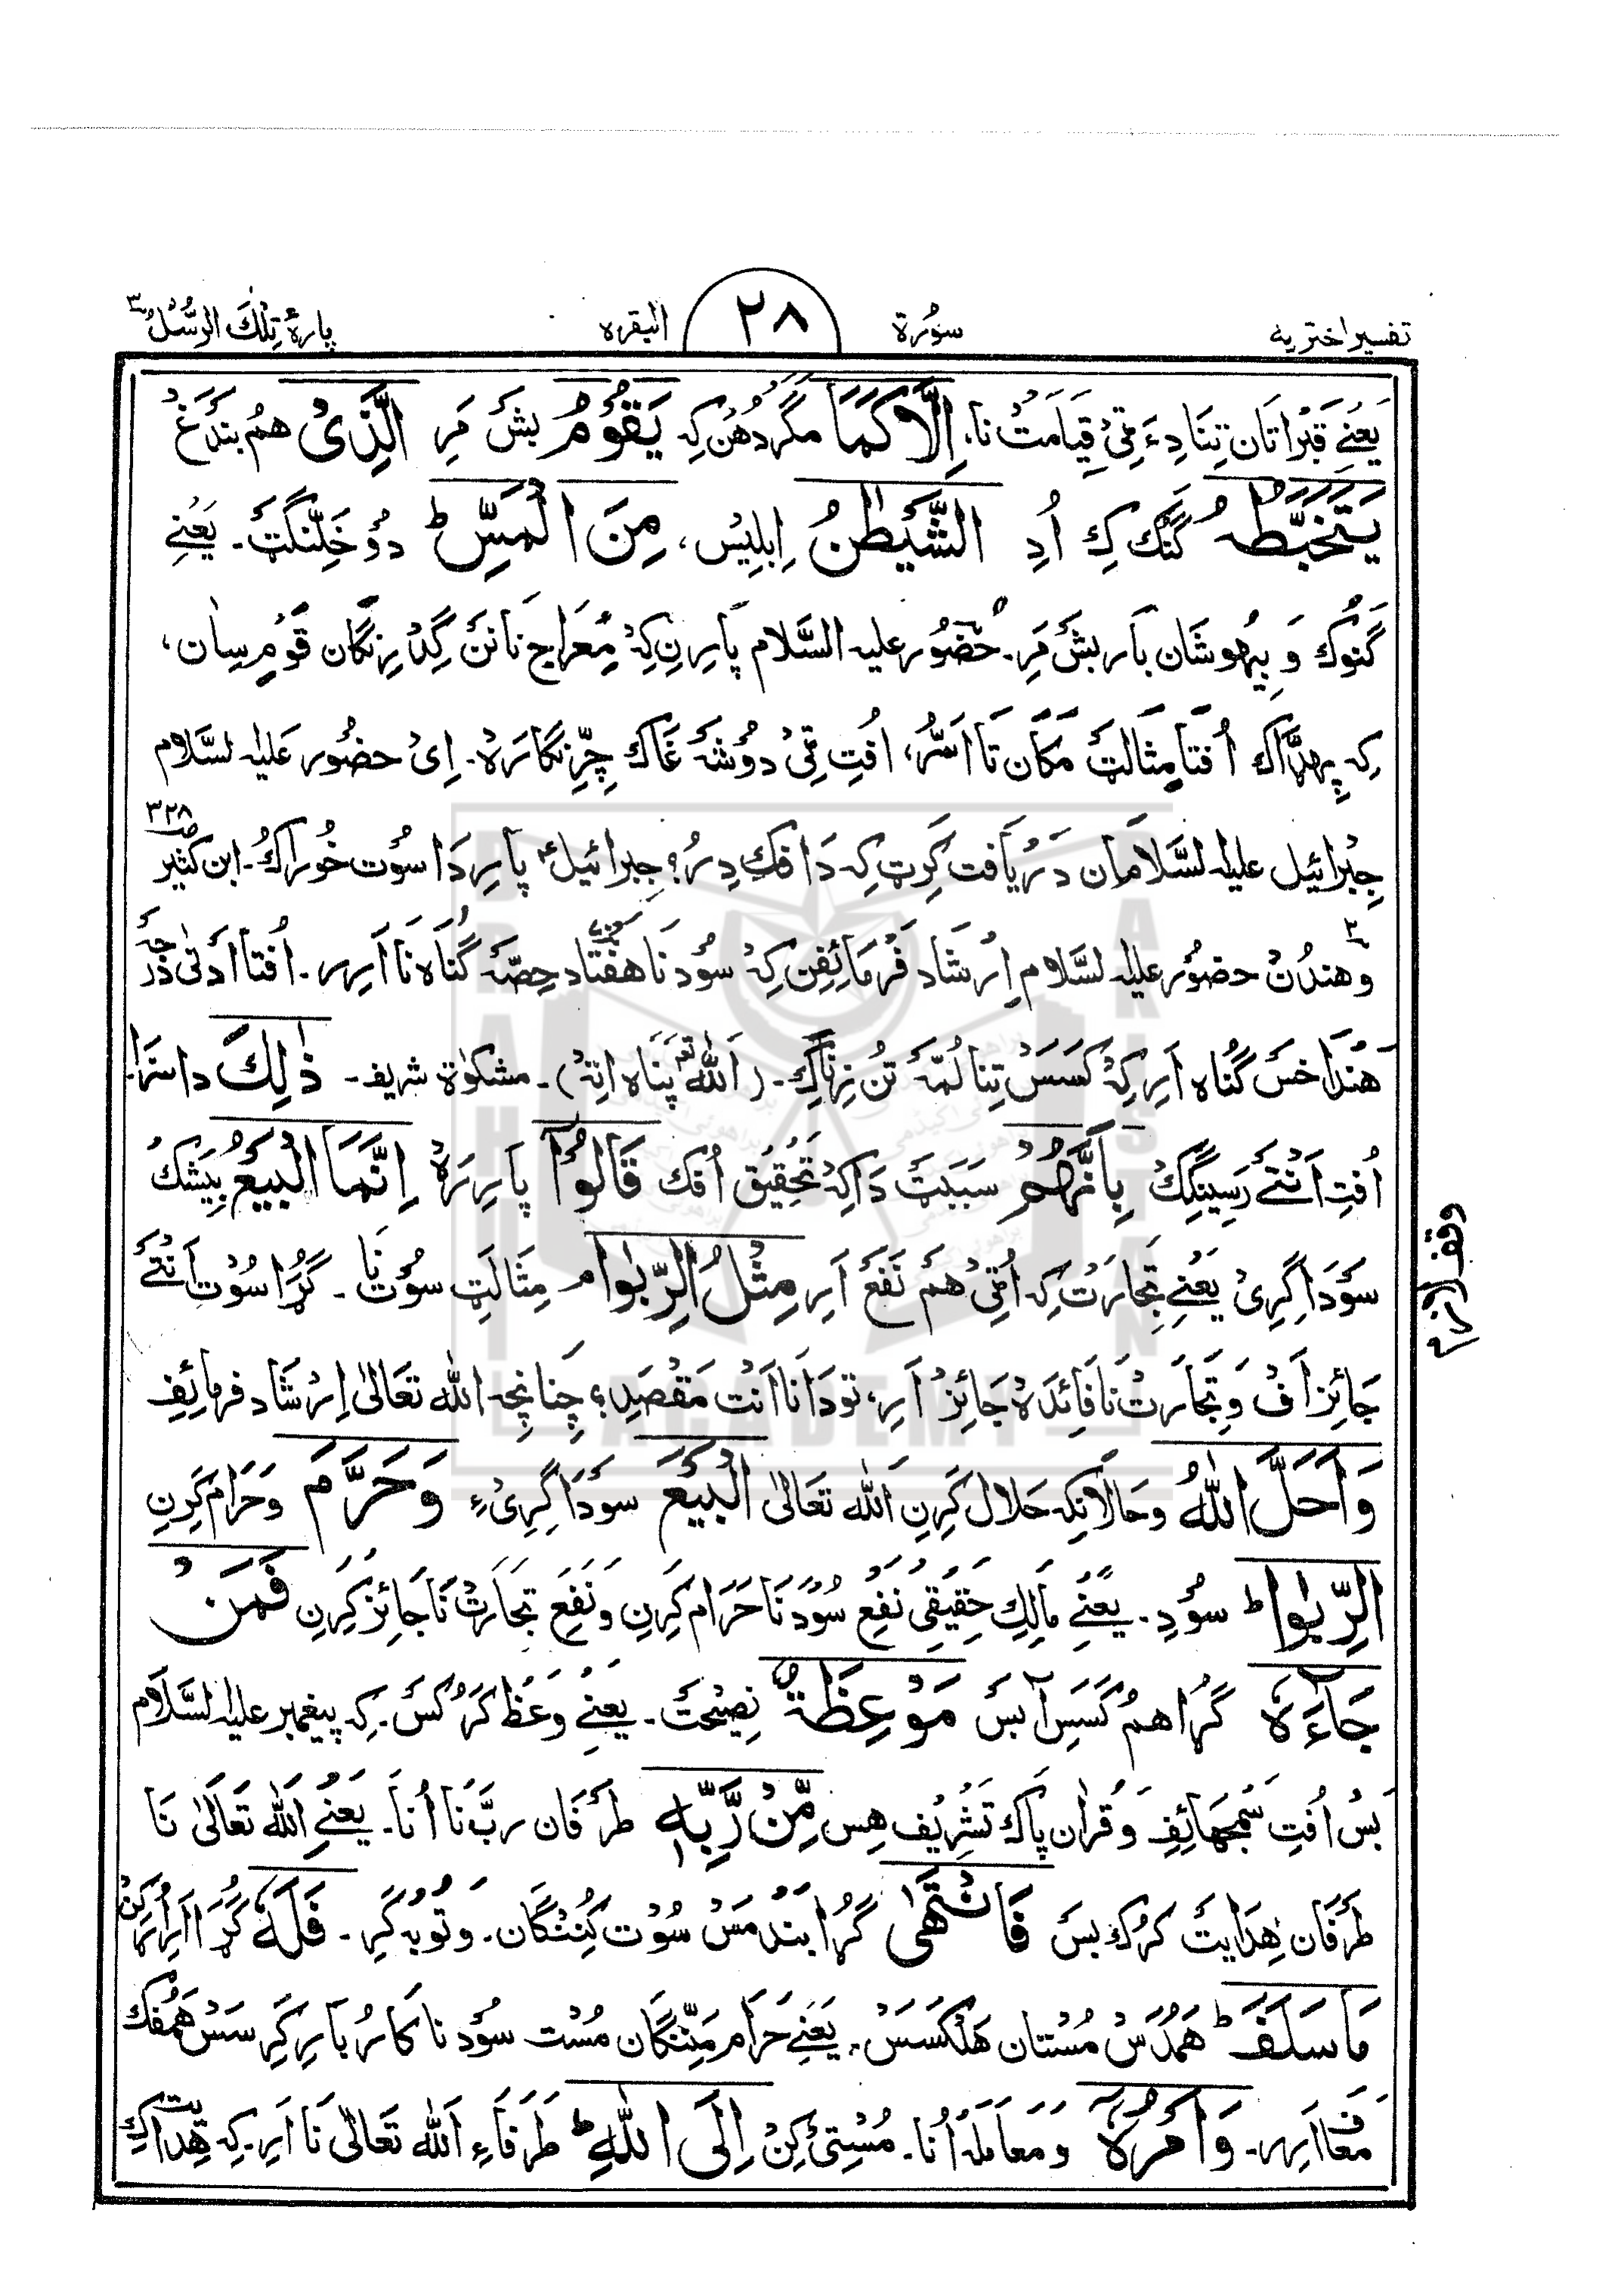 تفسیر اختریه سوُرة ۲۸ البقره پارهٔ تِلْكَ الرُّسُلُ ۳
یَعْنِے قَبْرَاتَان تِنَا دِءَ ٹِیْ قِیَامَتْ نَا، اِلَّا كَمَا مگر دُھُن کِہ یَقُوْمُ بَشْ مَرِ الَّذِیْ ھمُ بَنْدَغْ
یَتَخَبَّطُهُ گَنٚگ کِ اُدِ الشَّیْطٰنُ اِبلِیْس، مِنَ الْمَسِّ ط دوُ خَلِّنگٹ۔ یَعْنِے
گَنوُک وَ بیہوشَان بَار بَشْ مَرِ۔ حضُور علیہ السَّلام پَارِنِ کِہ مِعَراج نَانَنْ گِدْرِنگان قَوْمِ سِان،
کِہ پِھڈَّاک اُفتَا مِثَالَٹ مَکَان تَا اَسُّر، افتِ ٹِیْ دوُشَہ غَاک چِرِّنگارَہ۔ اِیْ حضُور عَلیہ لسَّلام
جِبْرائیل علیہ لسَّلامَان دَرْیَافت کَرِٹ کِہ دَافک دِرُ؟ جبرائیل پَارِ دَا سوُت خُوراکُ۔ ابن کثیر ص ۳۲۸ ۳
وھندُنْ حضوُر علیہ لسَّلام اِرشَاد فَرمَائِفِن کِہ سوُد نَا ھَفْتَاد حِصَّہ گُنَاہ نَا اَرِیر۔ اُفتَا اَدنٰی دَرجَہ
ھَنْدَاخَس گُنَاہ اَرِ کِہ کَسَسْ تِنَا لُمَّہ تُن زِنَاکِ۔ (اَللّٰه پَنَاہ اِتِہْ)۔ مشکوٰة شریف۔ ذٰلِكَ دا سَزَا
اُفتِ اَنْتَئے رَسِینگِک بِاَنَّهُمْ سَبَبَٹ دَاکِہ تَحْقِیْق اُفک قَالُوْا پَارِرَہ اِنَّمَا الْبَیْعُ بیْشک
سَوْدَاگِرِیْ یَعْنِے تِجَارَت کِہ اُٹِیْ ھَمْ نَفَع اَرِ مِثْلُ الرِّبٰوا م مِثَالَٹِ سوُت نَا۔ گُڑَا سوُت اَنْتَئے
جَائِز اَفْ وَ تِجَارَت نَا فَائِدَہ جَائِز اَرِ، تو دَانَا اَنْت مَقْصَدِ؟ چُنَانچہ اللّٰه تَعَالیٰ اِرْشَاد فرمَائِفِ
وَاَحَلَّ اللّٰهُ وحَالاَنکہ حَلال کَرِنِ اَللّٰه تعَالیٰ الْبَیْعَ سَوْدَاگِرِیْءِ وَحَرَّمَ وحَرام کَرِنِ
الرِّبٰوا ط سوُدِ۔ یَعْنِے مَالِکِ حَقِیقِی نَفعِ سوُد نَا حَرَام کَرِنِ وَ نَفَعِ تِجَارَتْ نَا جَائِز کَرِنِ فَمَنْ
جَآءَهٗ گُڑَا ھمُ کَسَسِ آبَسْ مَوْعِظَةٌ نصِیْحَت۔ یَعْنِے وَعْظ کَرُکَسْ۔ کِہ پیغمبر علیہ لسَّلام
بَسْ اُفتِ سَمجھائِفِ وَ قُراٰن پَاک تَشْرِیف ھِس مِّنْ رَّبِّهٖ طرَفَان ربَّ نَا اُنَا۔ یَعْنِے اَللّٰه تَعَالیٰ نَا
طرَفَان ھِدَایَت کَرُک بَسَ فَانْتَهٰی گُڑَا بَنْد مَسْ سُوْت کُنِنْگان۔ وَ توُبہ کَرِ۔ فَلَهٗ گُڑَا اَرِ اُرکِنْ
مَا سَلَفَ ط ھَمُدُسْ مُسْتَان ھَلْکُسَسْ۔ یَعْنِے حَرَام مَنِّنگَان مُسْت سوُد نَا کَارُبَار کَرِسَسْ ھَمُفک
مَعَاف اَرِیر۔ وَاَمْرُهٗ وَ مَعَاملہ اُنَا۔ مُسْتِیْ کِنْ اِلَی اللّٰهِ ط طَرَفَاءِ اَللّٰه تعَالیٰ نَا اَرِ۔ کِہ
وقف لازم